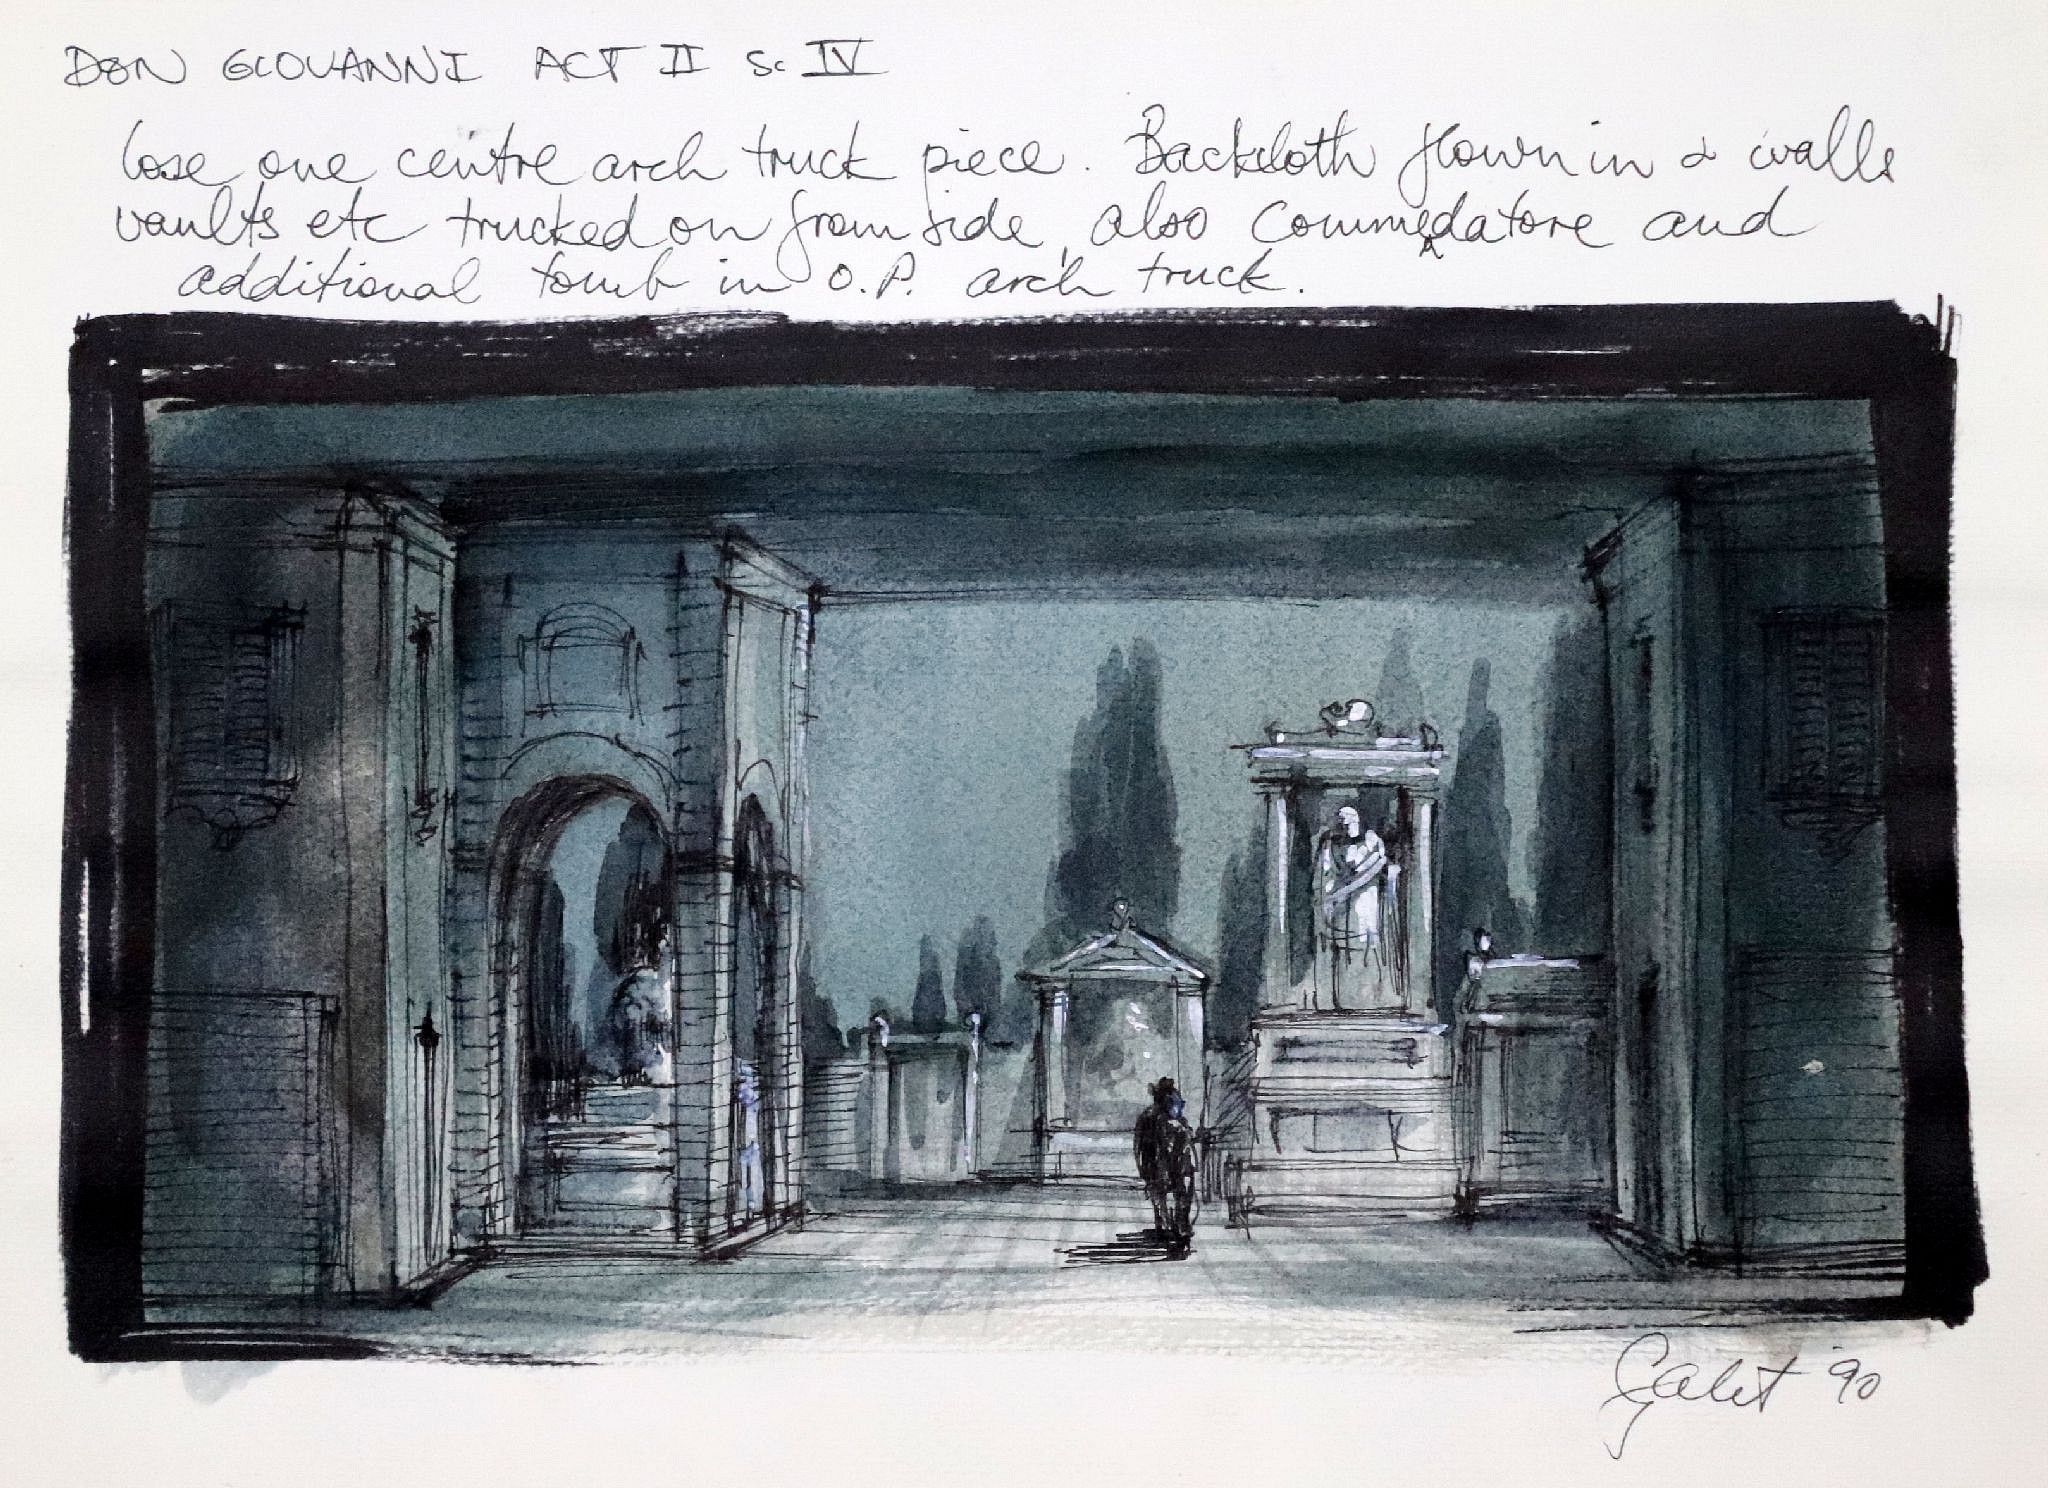 DON GIOVANNI ACT II Sc IV
lose one centre arch truck piece. Backcloth flown in & walls
vaults etc trucked on from side, also Commedatore and
additional tomb in O.P. arch truck.
'90